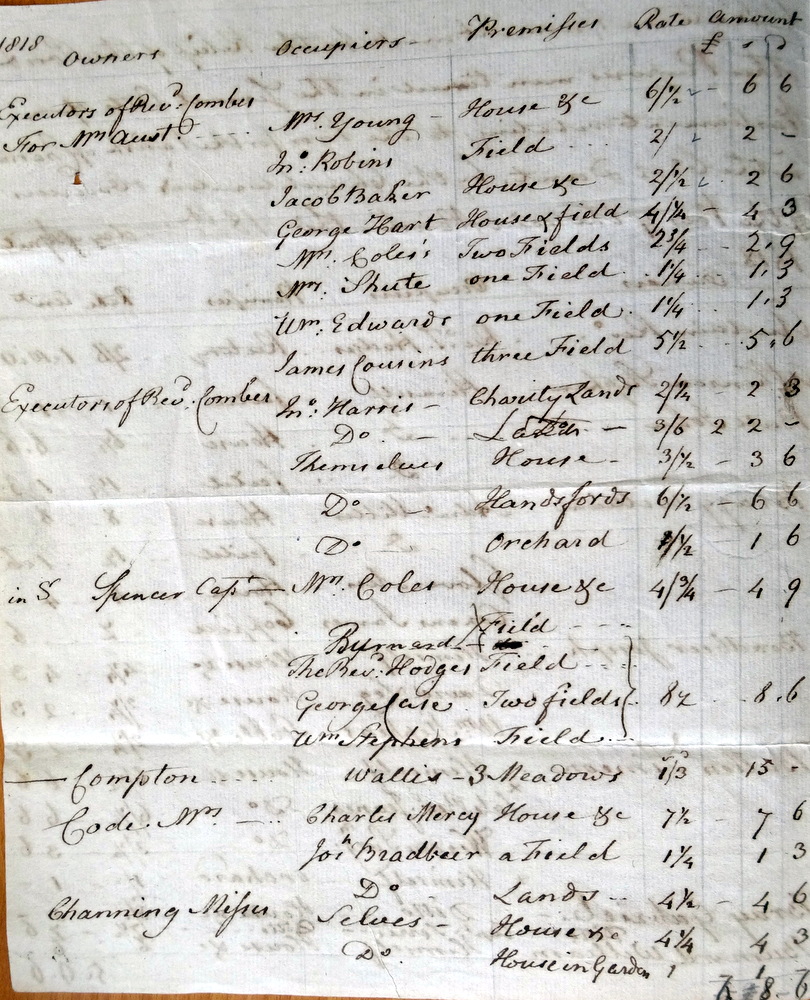 1818 Owners Occupiers - Premisses Rate Amount
£ s D
Executors of Revd. Combes
For Mrs Aust. Mrs. Young - House &c 6/½ - 6 6
Jno. Robins Field 2/ - 2 -
Jacob Baker House &c 2/½ - 2 6
George Hart House & field 4/¼ - 4 3
Mrs. Coles's Two Fields 2¾ - 2 . 9
Mrs. Shute one Field 1¼ 1 . 3
Wm. Edwards one Field 1¼ 1 . 3
James Cousins three Field 5½ 5 . 6
Executors of Revd. Combes Jno. Harris - Charity Lands 2/¼ - 2 3
Do. - Lands - 3/6 2 2 -
Themselves House - 3/½ - 3 6
Do - Handsfords 6/½ - 6 6
Do - Orchard 1/½ 1 6
in Sr Spencer Capt - Mrs. Coles House &c 4/¾ - 4 9
Byrnard Field
The Revd. Hodges Field
George Case Two fields 8½ 8 . 6
Wm Stephens Field
— Compton Wallis - 3 Meadows 1/3 15 -
Code Mrs - Charles Mercy House &c 7½ - 7 6
Josh Bradbeer a Field 1¼ 1 3
Do Lands 4½ - 4 6
Channing Misses Selves - House &c 4¼ 4 3
Do. House in Garden 1 1
7 8 - 6